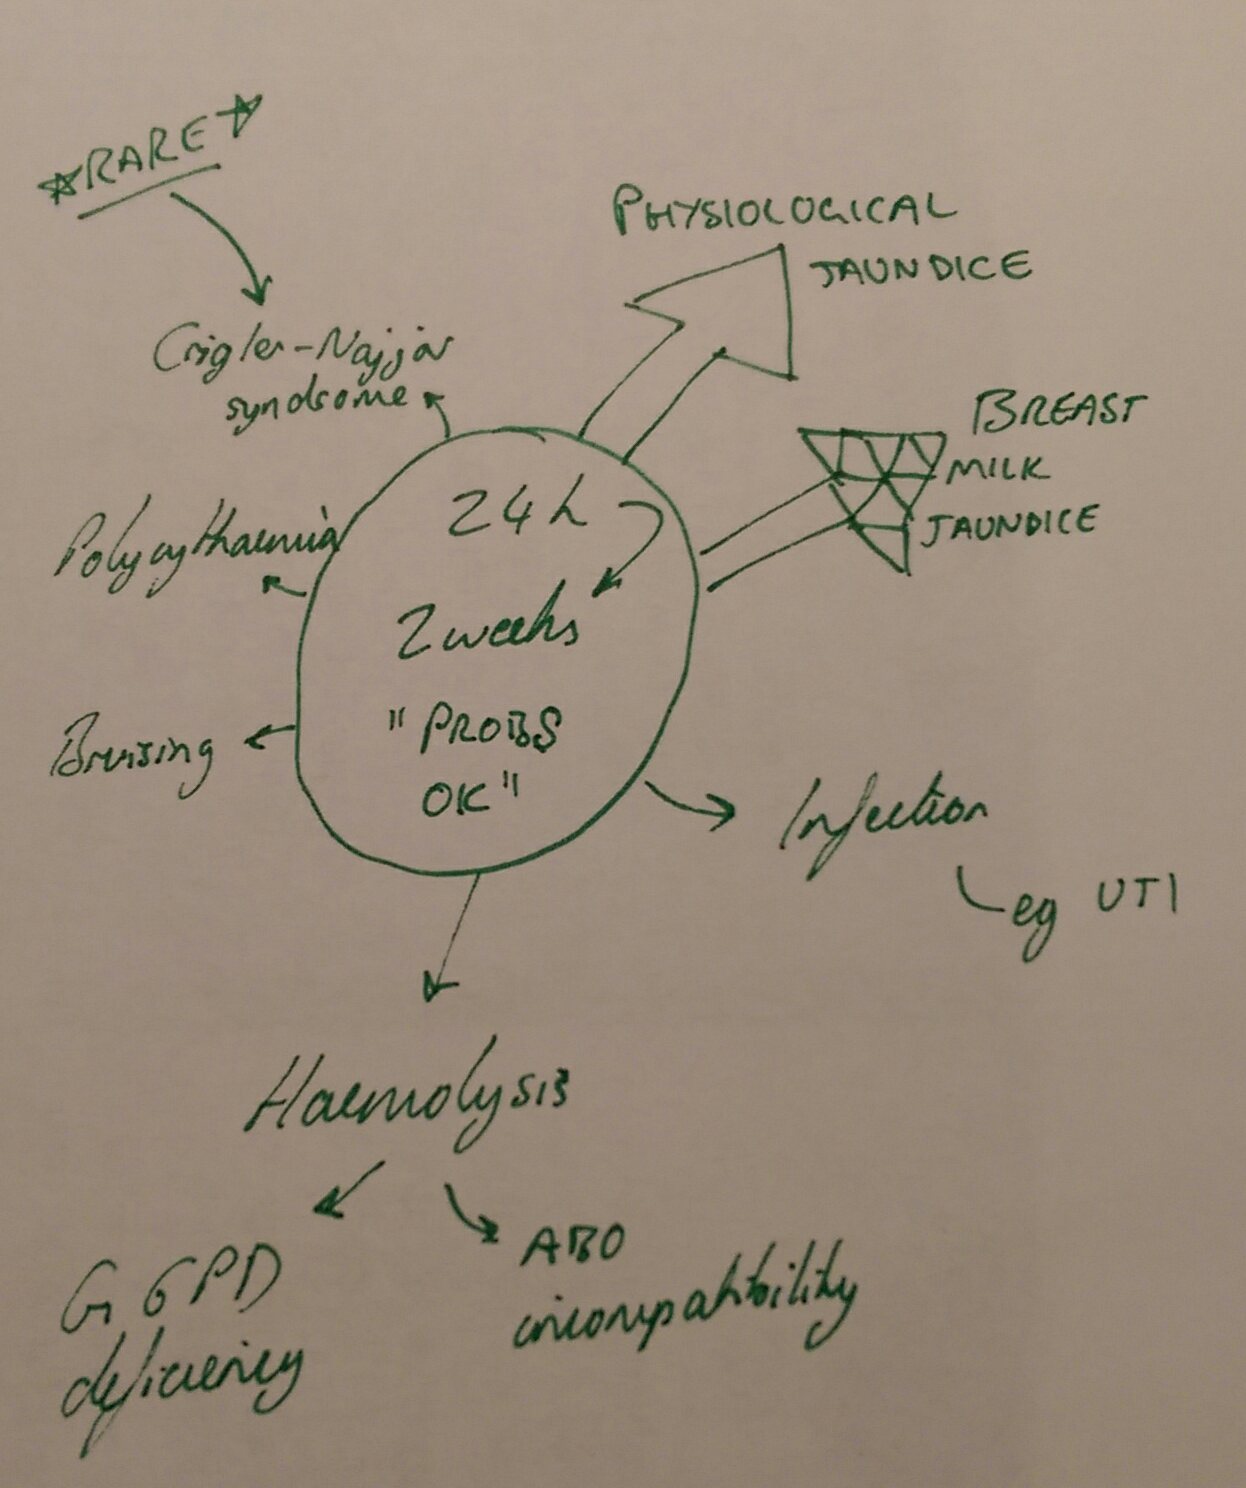 RARE
PHYSIOLOGICAL
JAUNDICE
Crigler-Najjar
syndrome
BREAST
MILK
JAUNDICE
24h
2 weeks
"PROBS
OK"
Polycythaemia
Bruising
Infection
eg UTI
Haemolysis
G6PD
deficiency
ABO
incompatibility